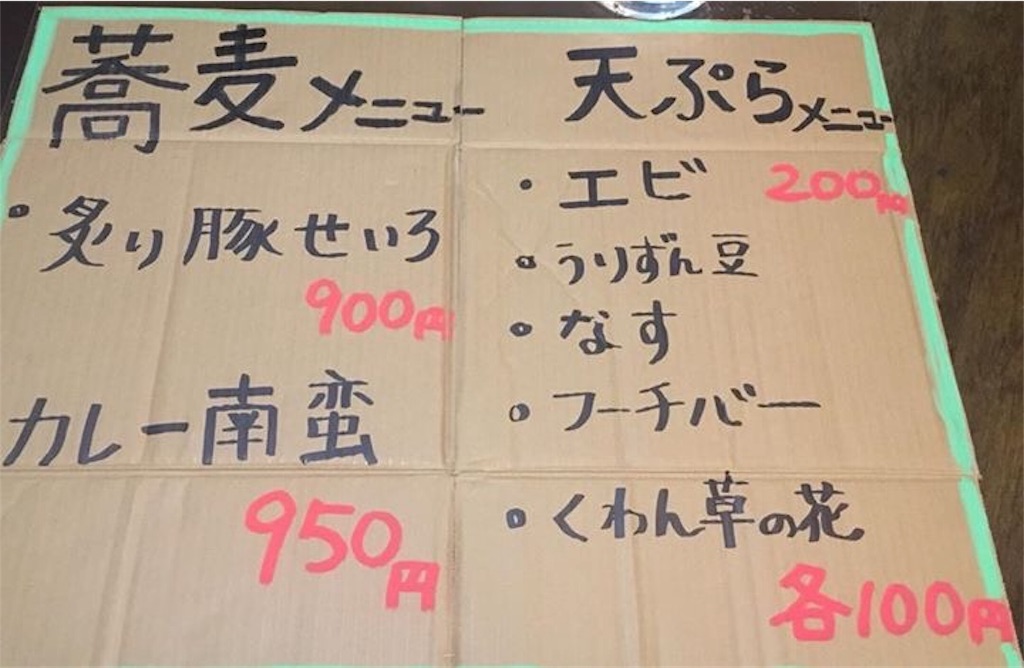 蕎麦メニュー
・炙り豚せいろ
900円
カレー南蛮
950円
天ぷらメニュー
・エビ 200円
・うりずん豆
・なす
・フーチバー
・くわん草の花
各100円